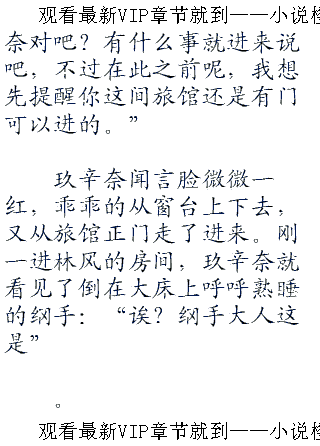 观看最新VIP章节就到——小说
奈对吧？有什么事就进来说
吧，不过在此之前呢，我想
先提醒你这间旅馆还是有门
可以进的。”
玖辛奈闻言脸微微一
红，乖乖的从窗台上下去，
又从旅馆正门走了进来。刚
一进林风的房间，玖辛奈就
看见了倒在大床上呼呼熟睡
的纲手：“诶？纲手大人这
是”
。
观看最新VIP章节就到——小说